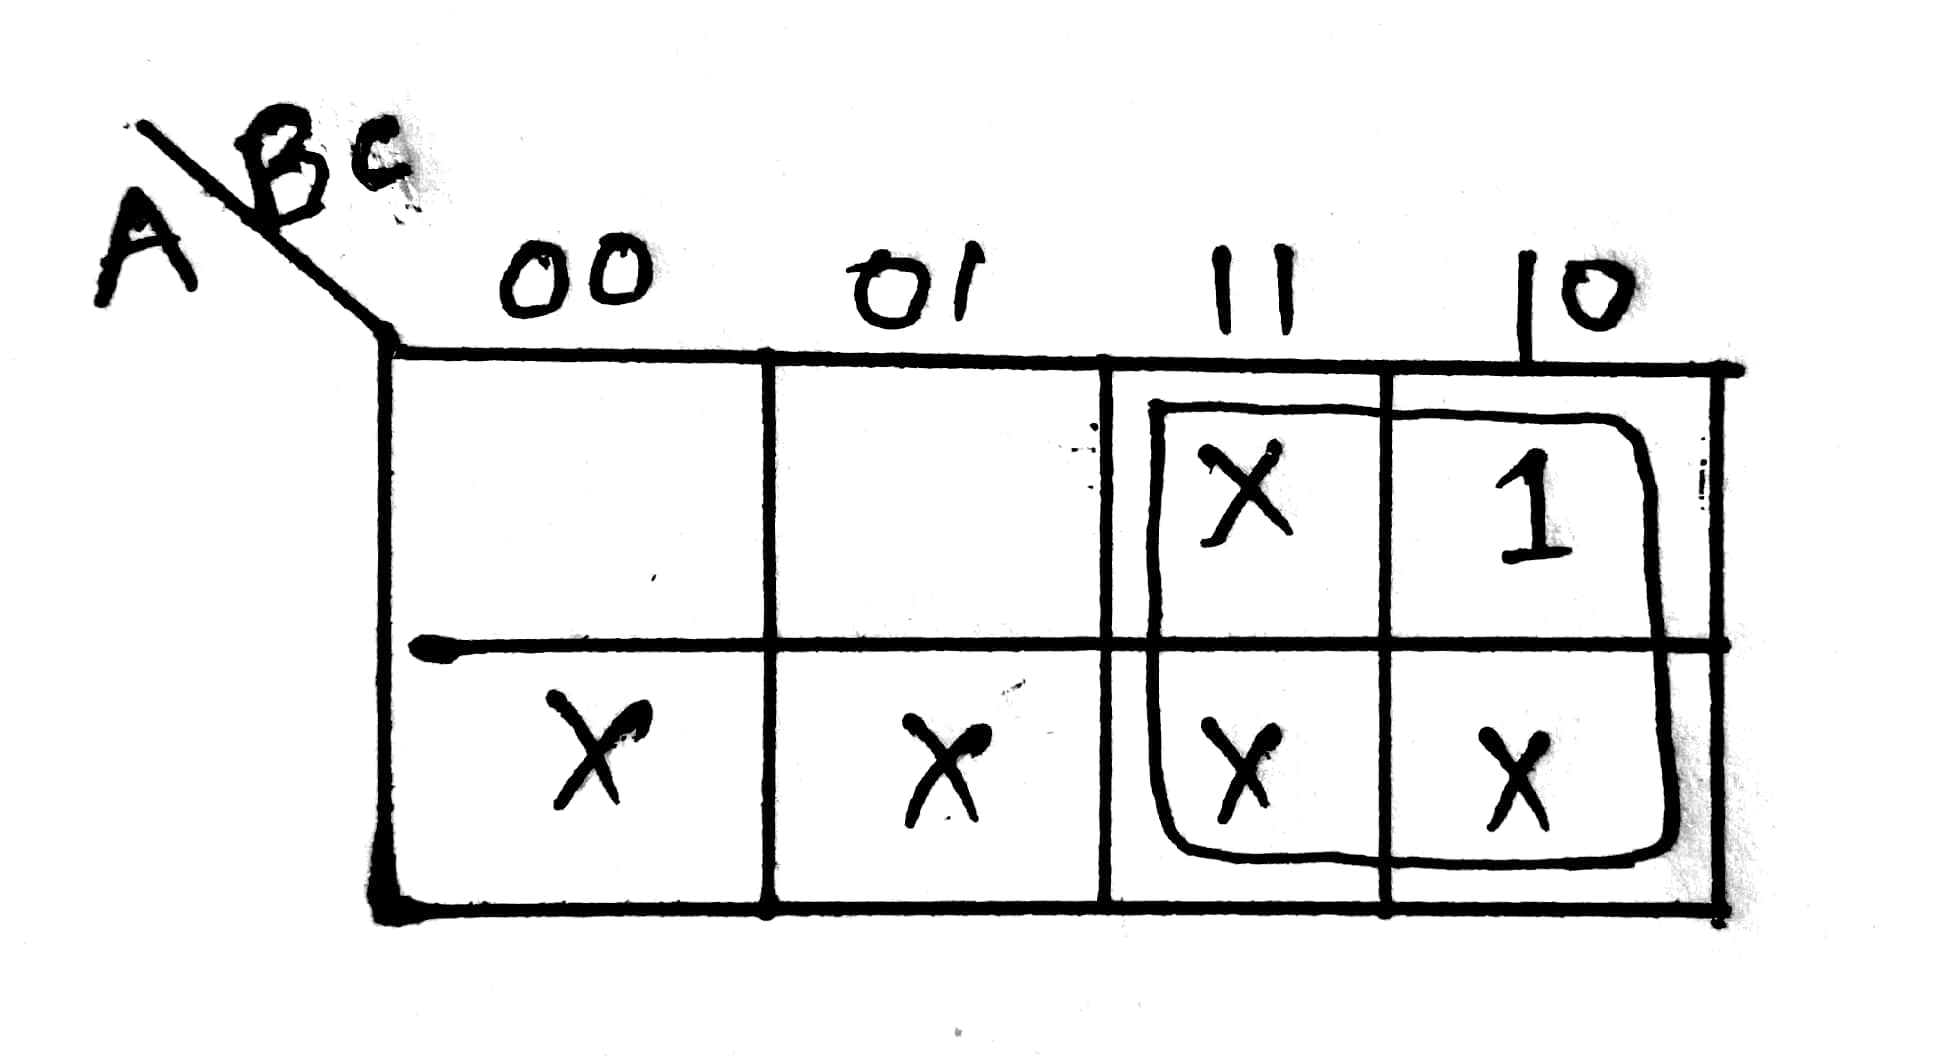 A BC
00 01 11 10
X 1
X X X X